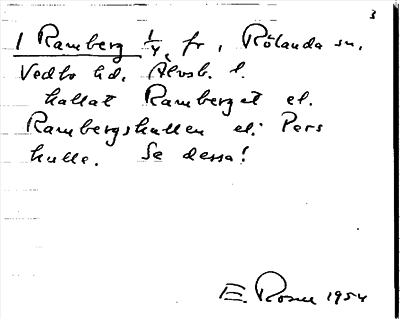 3
1 Ramberg 1/4 fr, Rölanda sn.
Vedbo hd. Älvsb. l.
kallat Ramberget el.
Rambergskullen el. Pers
kulle. Se dessa!
E. Rosell 1954